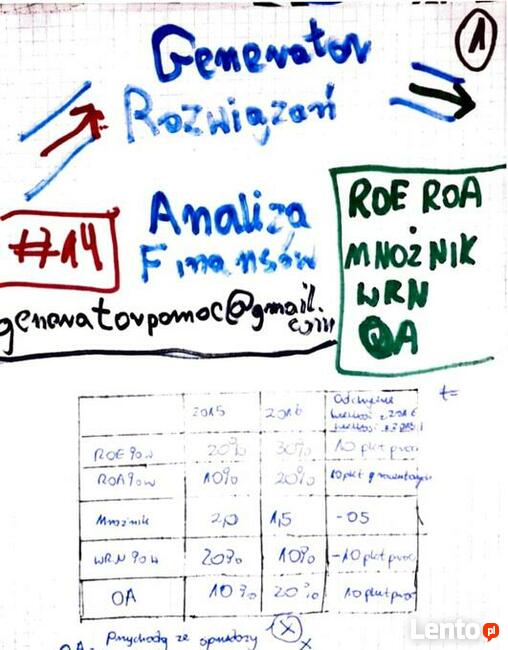 1
Generator
Rozwiązań
#714
Analiza
Finansów
generatorpomoc@gmail.
com
ROE ROA
MNOŻNIK
WRN
QA
2015 2016 Odchylenie
t=
ROE 20% 30% 10 pkt proc
ROA 10% 20% 10 pkt procentowych
Mnożnik 2,0 1,5 -05
WRN 20% 10% -10 pkt proc
OA 10% 20% 10 pkt proc
OA= Przychody ze sprzedaży x x
Lento.pl